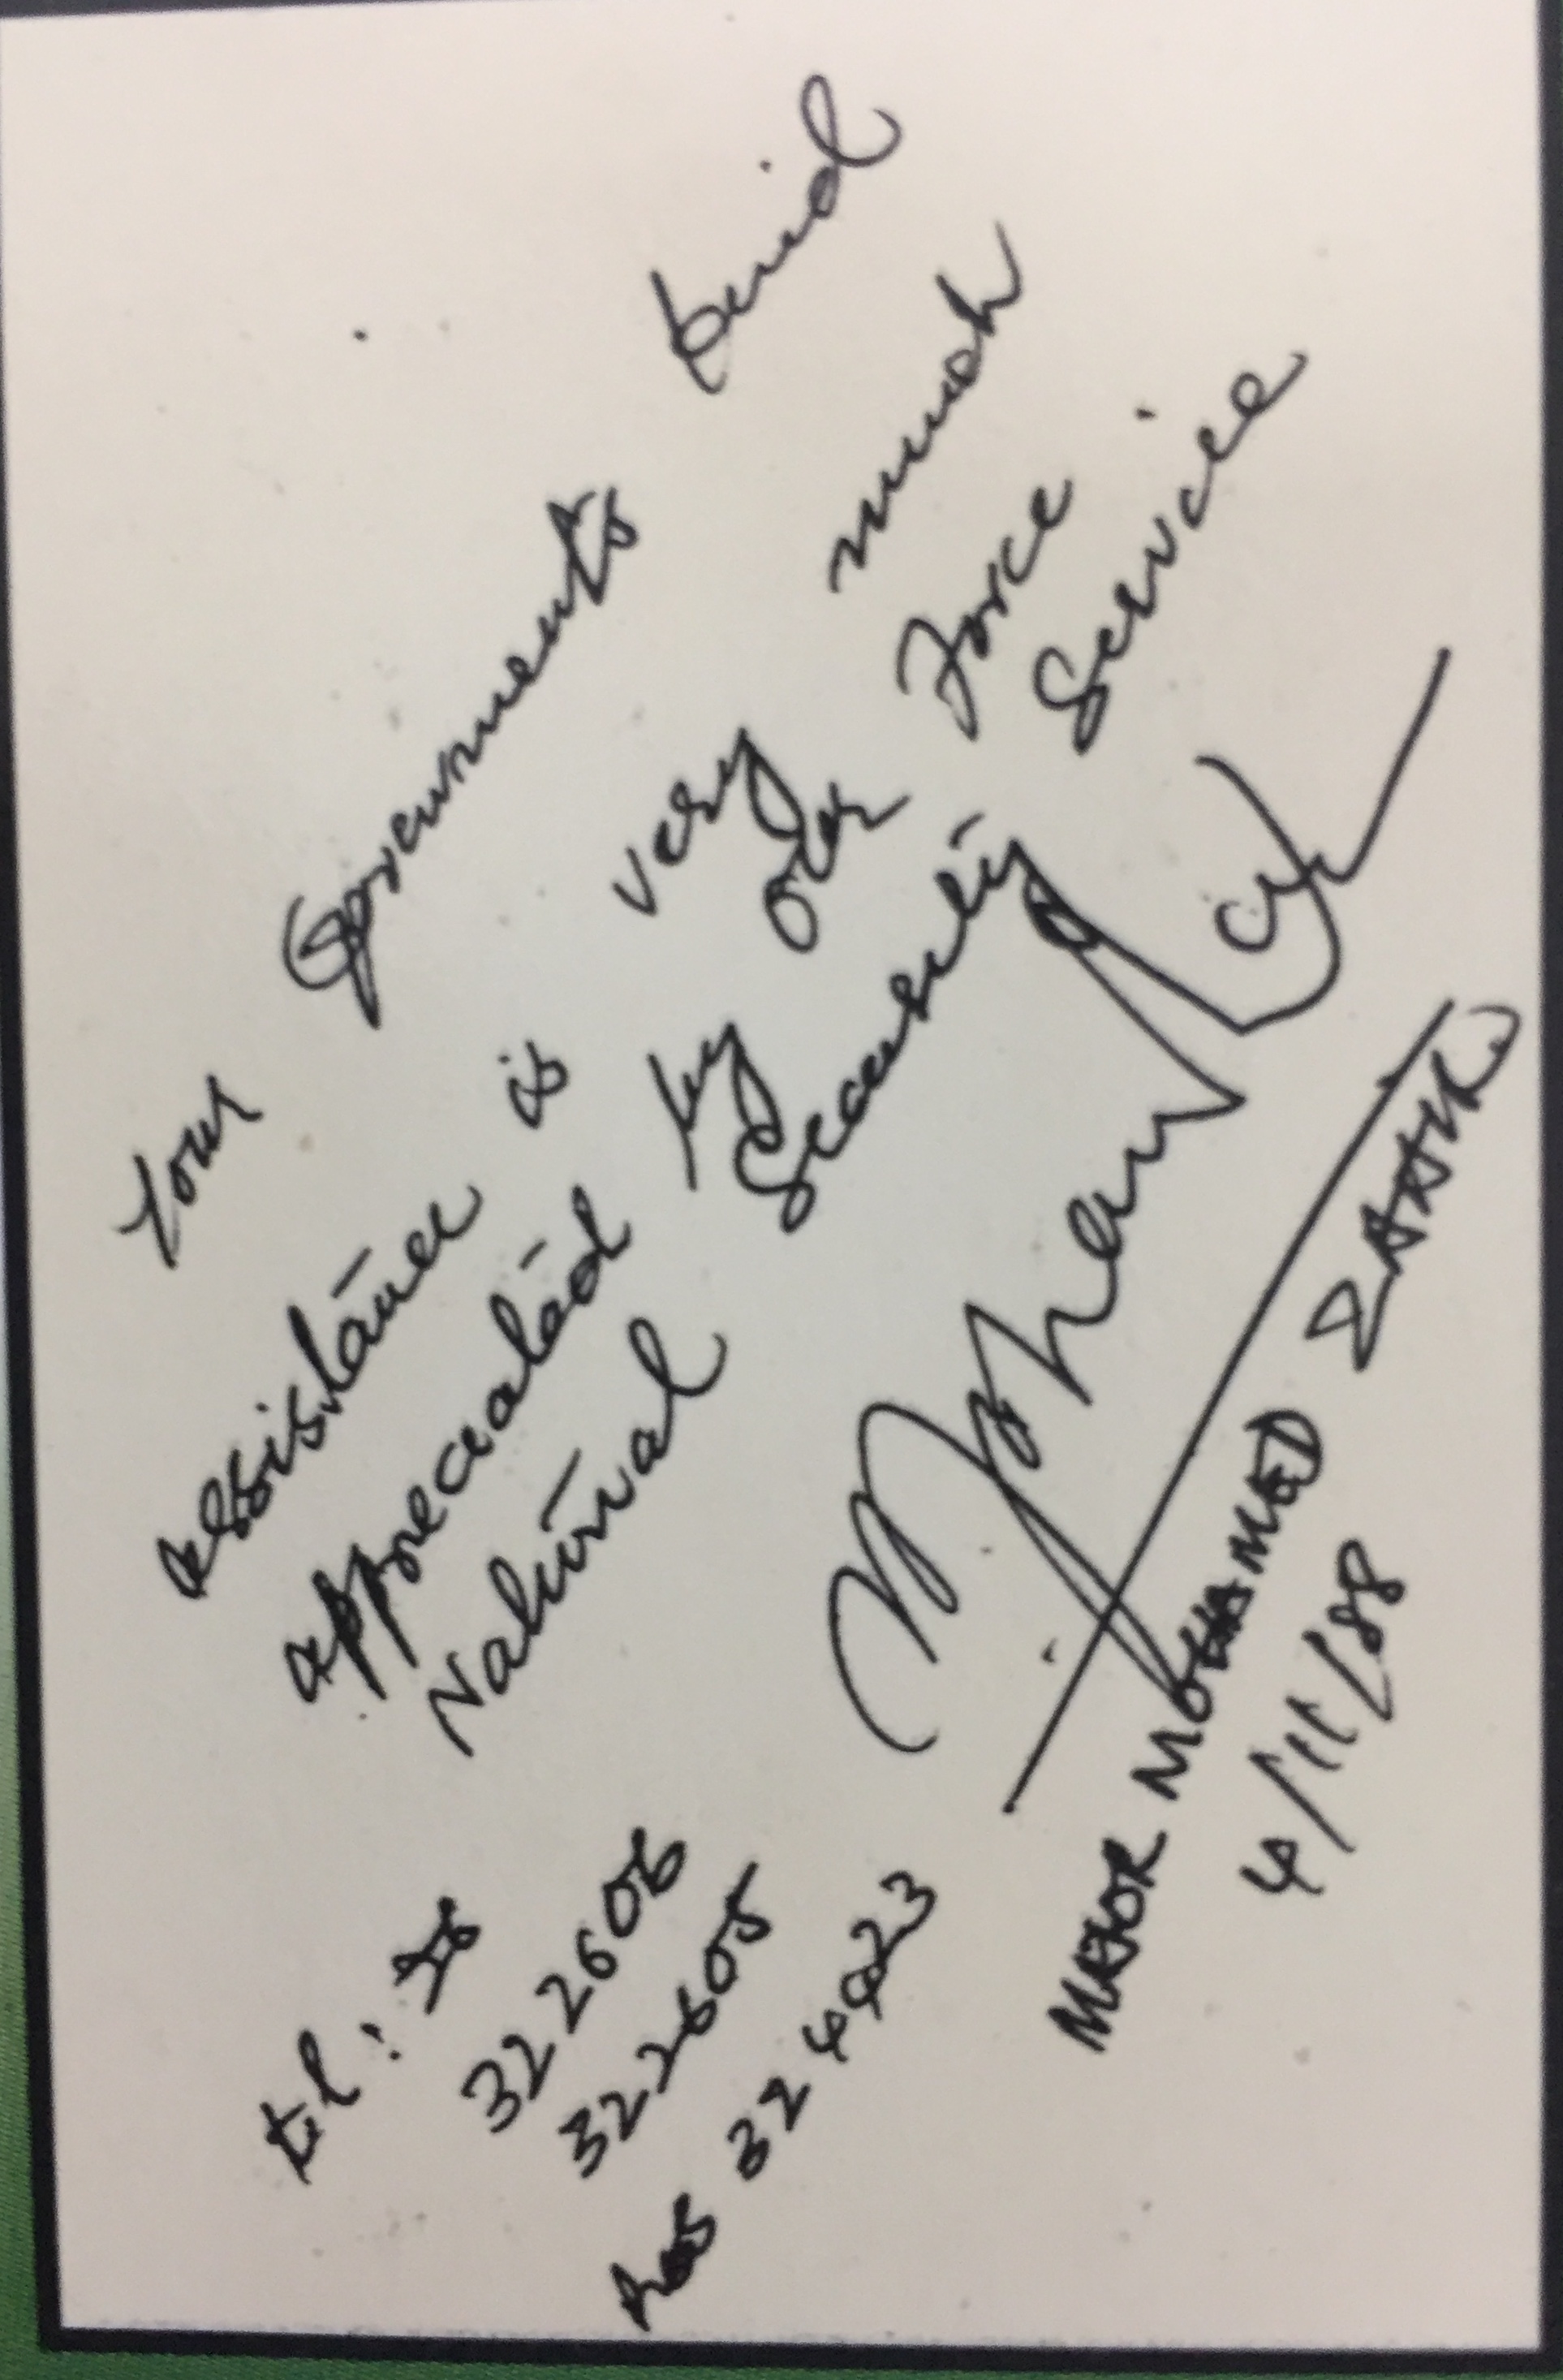 Your Governments kind
assistance is very much
appreciated by our Force
National Security Service
MAJOR MOHAMED ZAHIR
4/11/88
tel:
322606
322605
res 324423